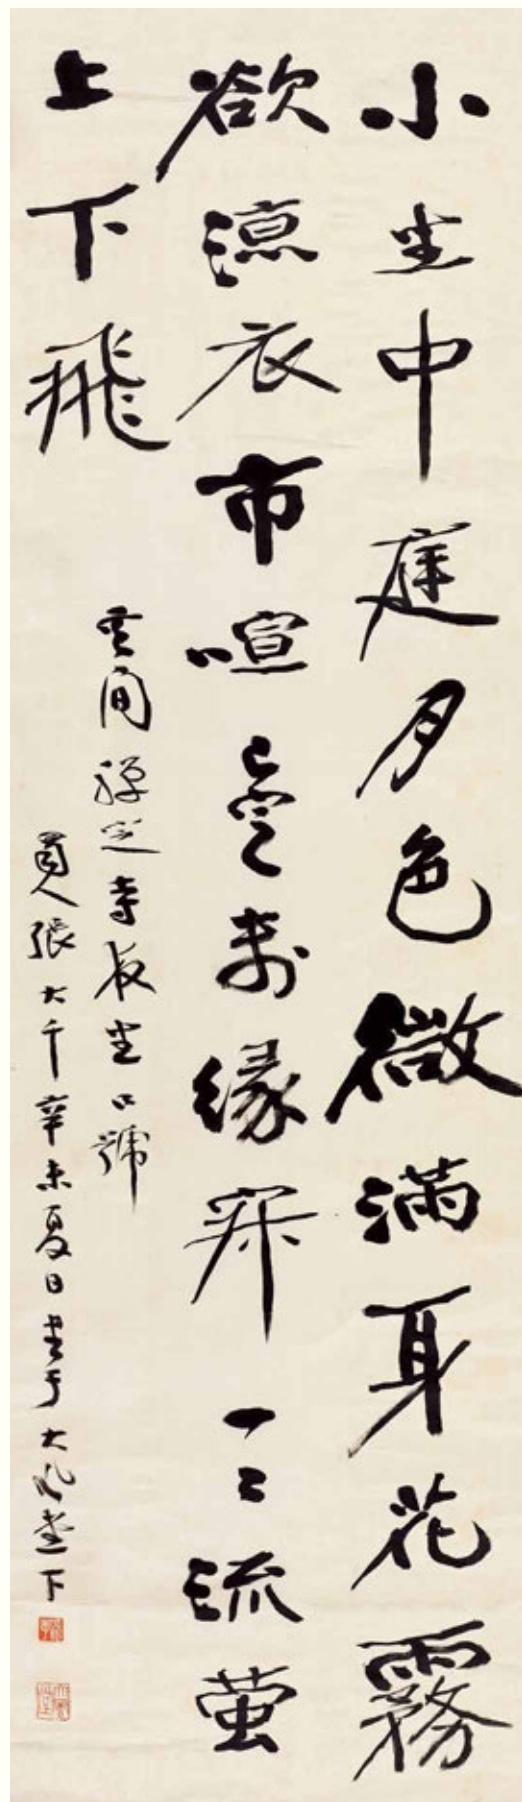 小坐中庭月色微滿身花霧
欲濕衣市喧已定萬緣寂一二流螢
上下飛
雲間禪定寺夜坐口號
蜀人張大千辛未夏日書于大風堂下